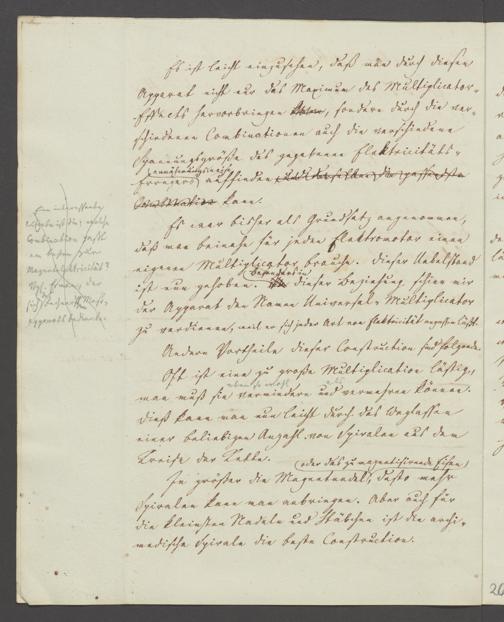 Es ist leicht einzusehen, daß man durch diesen
Apparat nicht nur das Maximum des Multiplicator-
Effects hervorbringen, sondern durch die ver-
schiedenen Combinationen auch die verschiedene
Spannungsgröße des gegebenen Elektricitäts-
Erregers auffinden und dieselben, die passendste
Combination kann.
Es war bisher als Grundsatz angenommen,
daß man beinahe für jeden Elektromotor einen
eigenen Multiplicator brauche. Dieser Uebelstand
ist nun gehoben. Besonders in dieser Beziehung schien mir
der Apparat den Namen Universal-Multiplicator
zu verdienen, weil er sich jeder Art von Elektricität anpassen läßt.
Andere Vortheile dieser Construction sind folgende.
Oft ist eine zu große Multiplication lästig,
man muß sie ebensowohl vermindern als vermehren können.
Dieß kann man nun leicht durch das Weglassen
einer beliebigen Anzahl von Spiralen aus dem
Kreise der Kette.
Je größer die Magnetnadel, (oder das zu magnetisirende Eisen) desto mehr
Spiralen kann man anbringen. Aber auch für
die kleinsten Nadeln und Stäbchen ist die archi-
medische Spirale die beste Construction.
Combination paßt
am besten
Magnetelektricität?